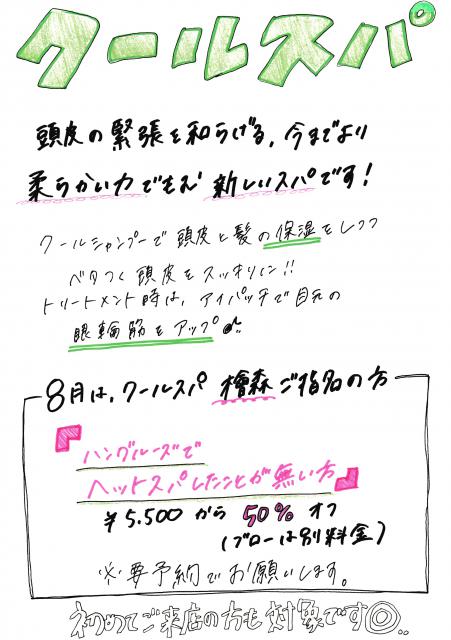 クールスパ
頭皮の緊張を和らげる、今までより
柔らかい力でもむ 新しいスパです!
クールシャンプーで頭皮と髪の保湿をしつつ
ベタつく頭皮をスッキリに!!
トリートメント時は、アイパッチで目元の
眼輪筋をアップ
8月は、クールスパ 檜森ご指名の方
『ハングルーズで
ヘッドスパしたことが無い方』
¥5.500から 50%オフ
(ブローは別料金)
※要予約でお願いします。
初めてご来店の方も対象です◎..